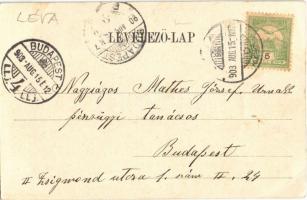 LÉVA
LEVELEZŐ-LAP
BUDAPEST
903 AUG. 15
903 AUG. 15
Nagyságos Mathes József Urnak
pénzügyi tanácsos
Budapest
II Zsigmond utcza 1. szám II. 24